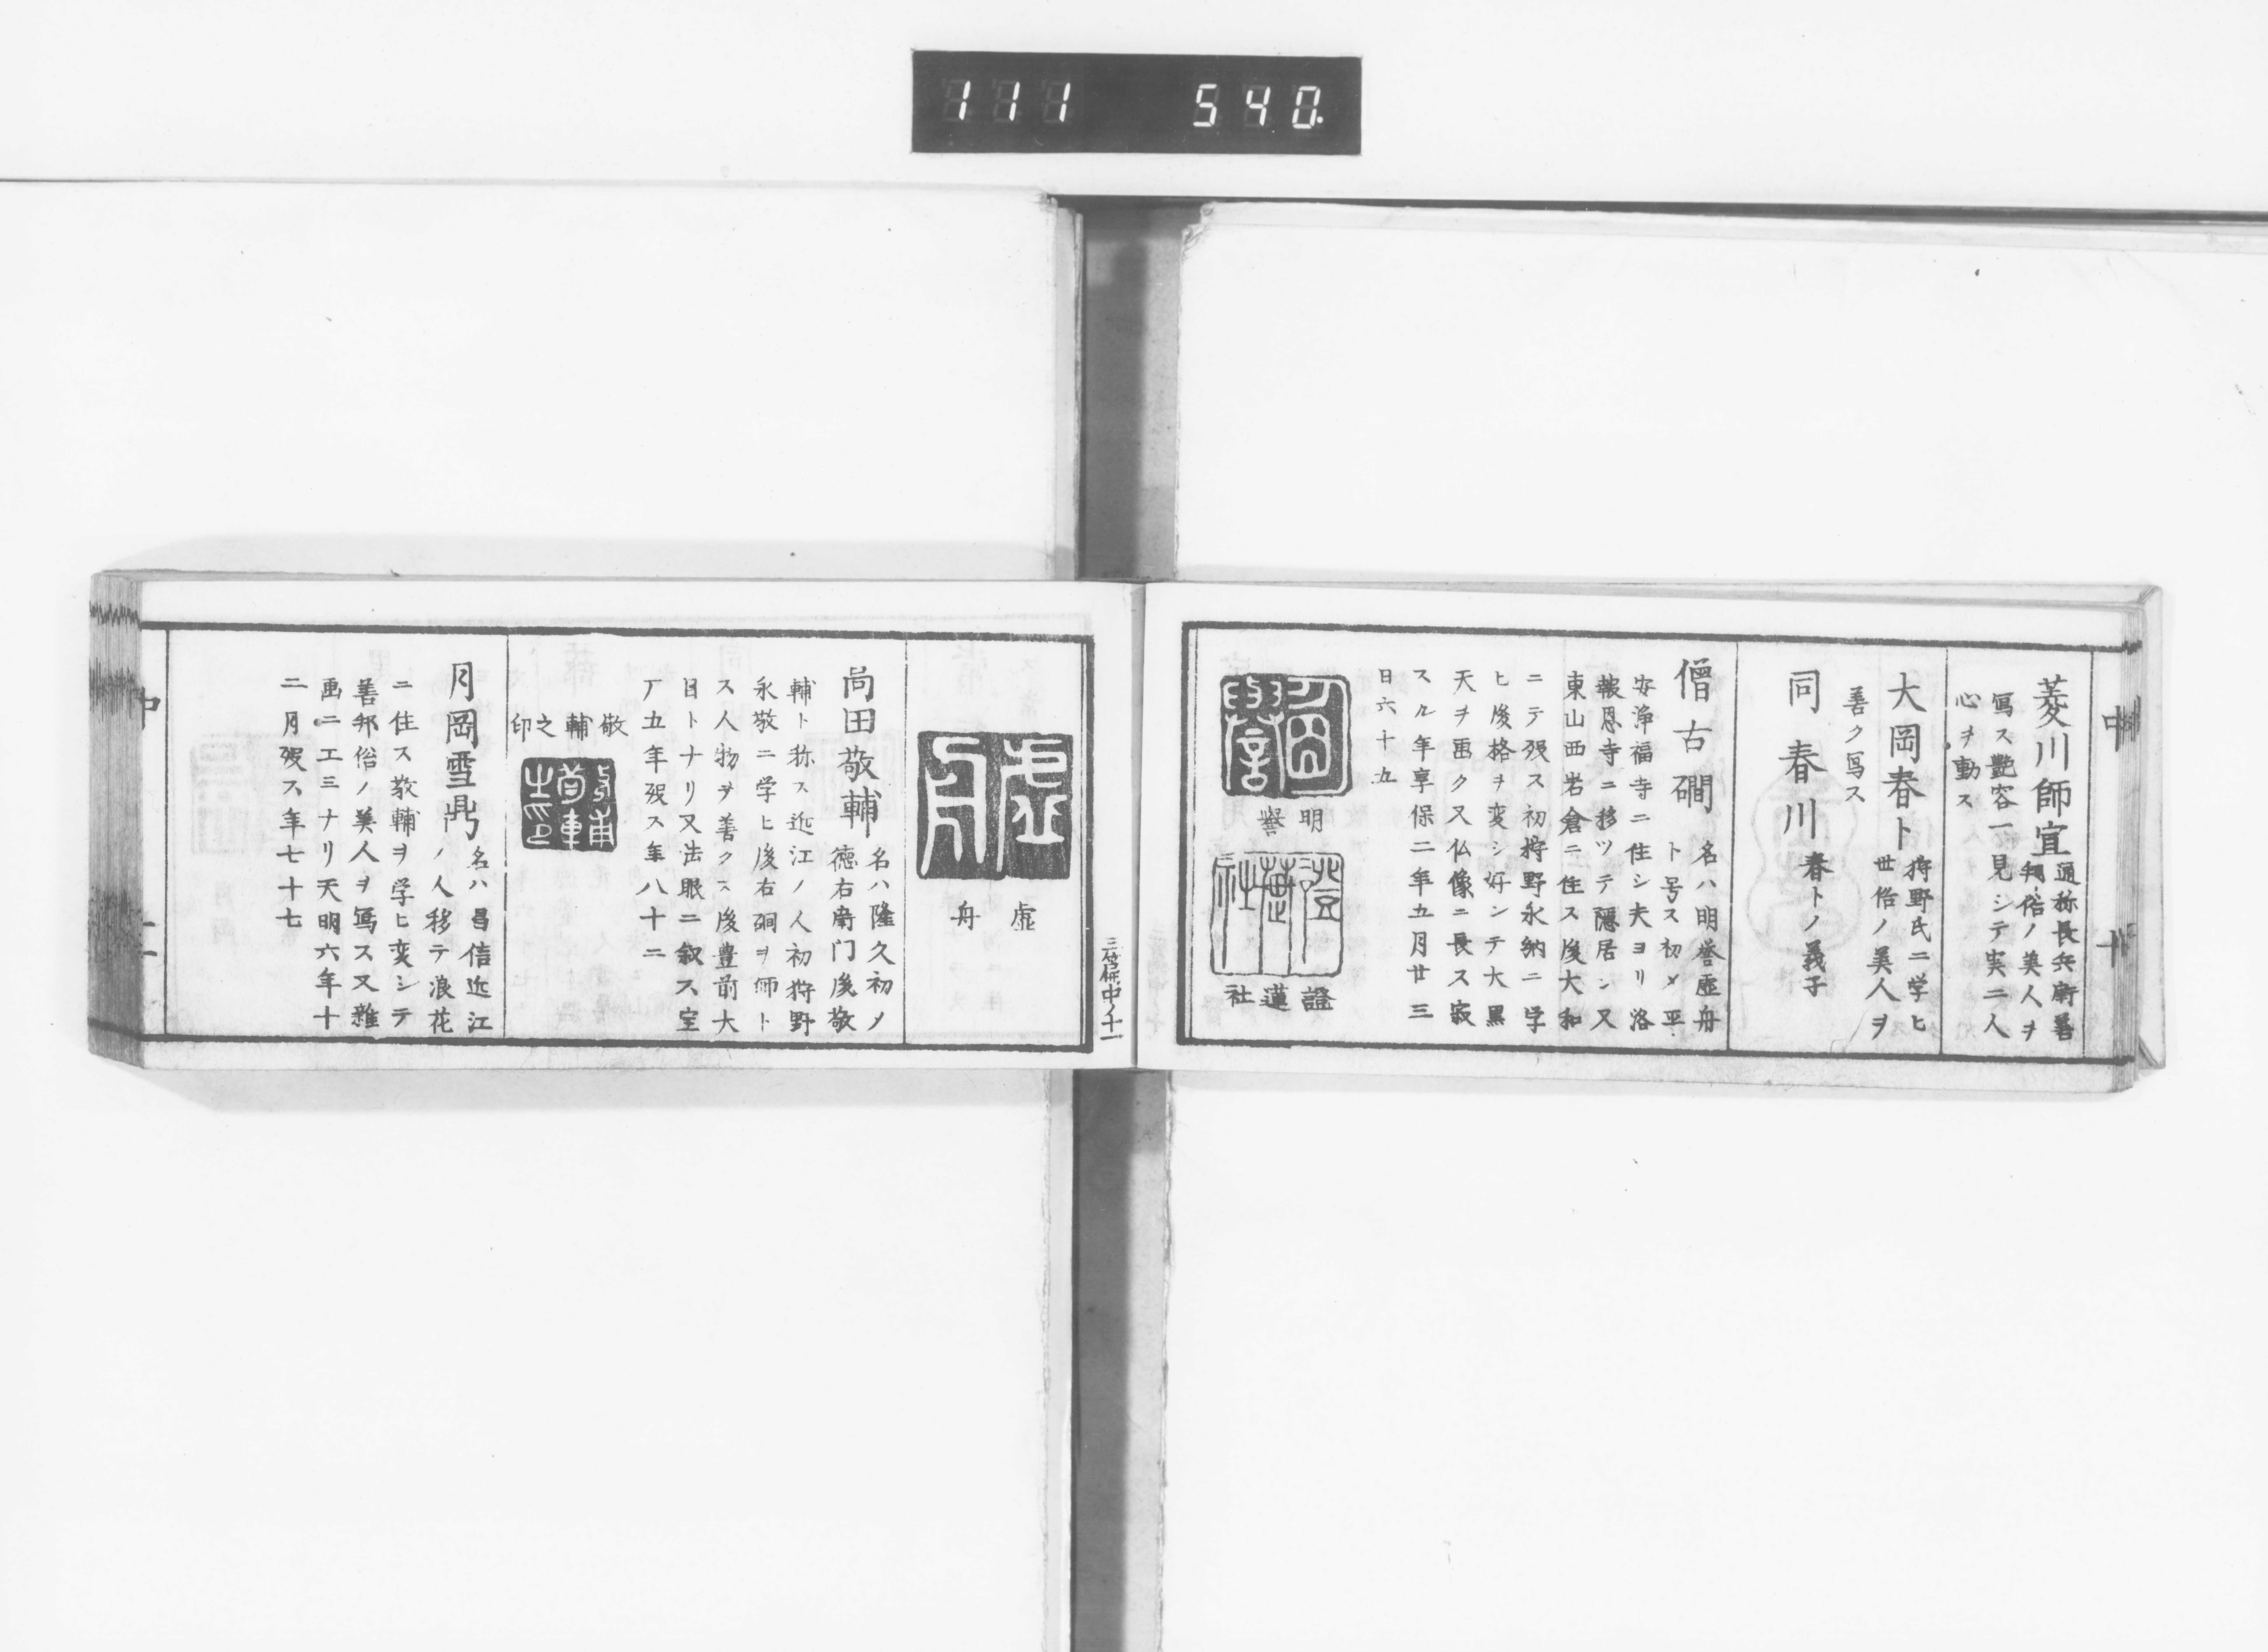 111 540.
中
十
菱川師宣
通称長兵衛善
邦俗ノ美人ヲ
写ス艶容一見シテ実ニ人
心ヲ動ス
大岡春ト
狩野氏ニ学ヒ
世俗ノ美人ヲ
善ク写ス
同春川
春トノ義子
僧古磵
名ハ明誉虚舟
ト号ス初メ平
安浄福寺ニ住シ夫ヨリ洛
報恩寺ニ移ツテ隠居シ又
東山西岩倉ニ住ス後大和
ニテ歿ス初狩野永納ニ学
ヒ後格ヲ変シ好ンテ大黒
天ヲ画ク又仏像ニ長ス寂
スル年享保二年五月廿三
日六十九
明誉
證蓮社
中ノ十一
虚舟
高田敬輔
名ハ隆久初メ
徳右衛門後敬
輔ト称ス近江ノ人初狩野
永敬ニ学ヒ後右磵ヲ師ト
ス人物ヲ善クス後豊前大
目トナリ又法眼ニ叙ス宝
厂五年歿ス年八十二
敬輔之印
月岡雪鼎
名ハ昌信近江
ノ人移テ浪花
ニ住ス敬輔ヲ学ヒ変シテ
善邦俗ノ美人ヲ写ス又雑
画ニエミナリ天明六年十
二月歿ス年七十七
中